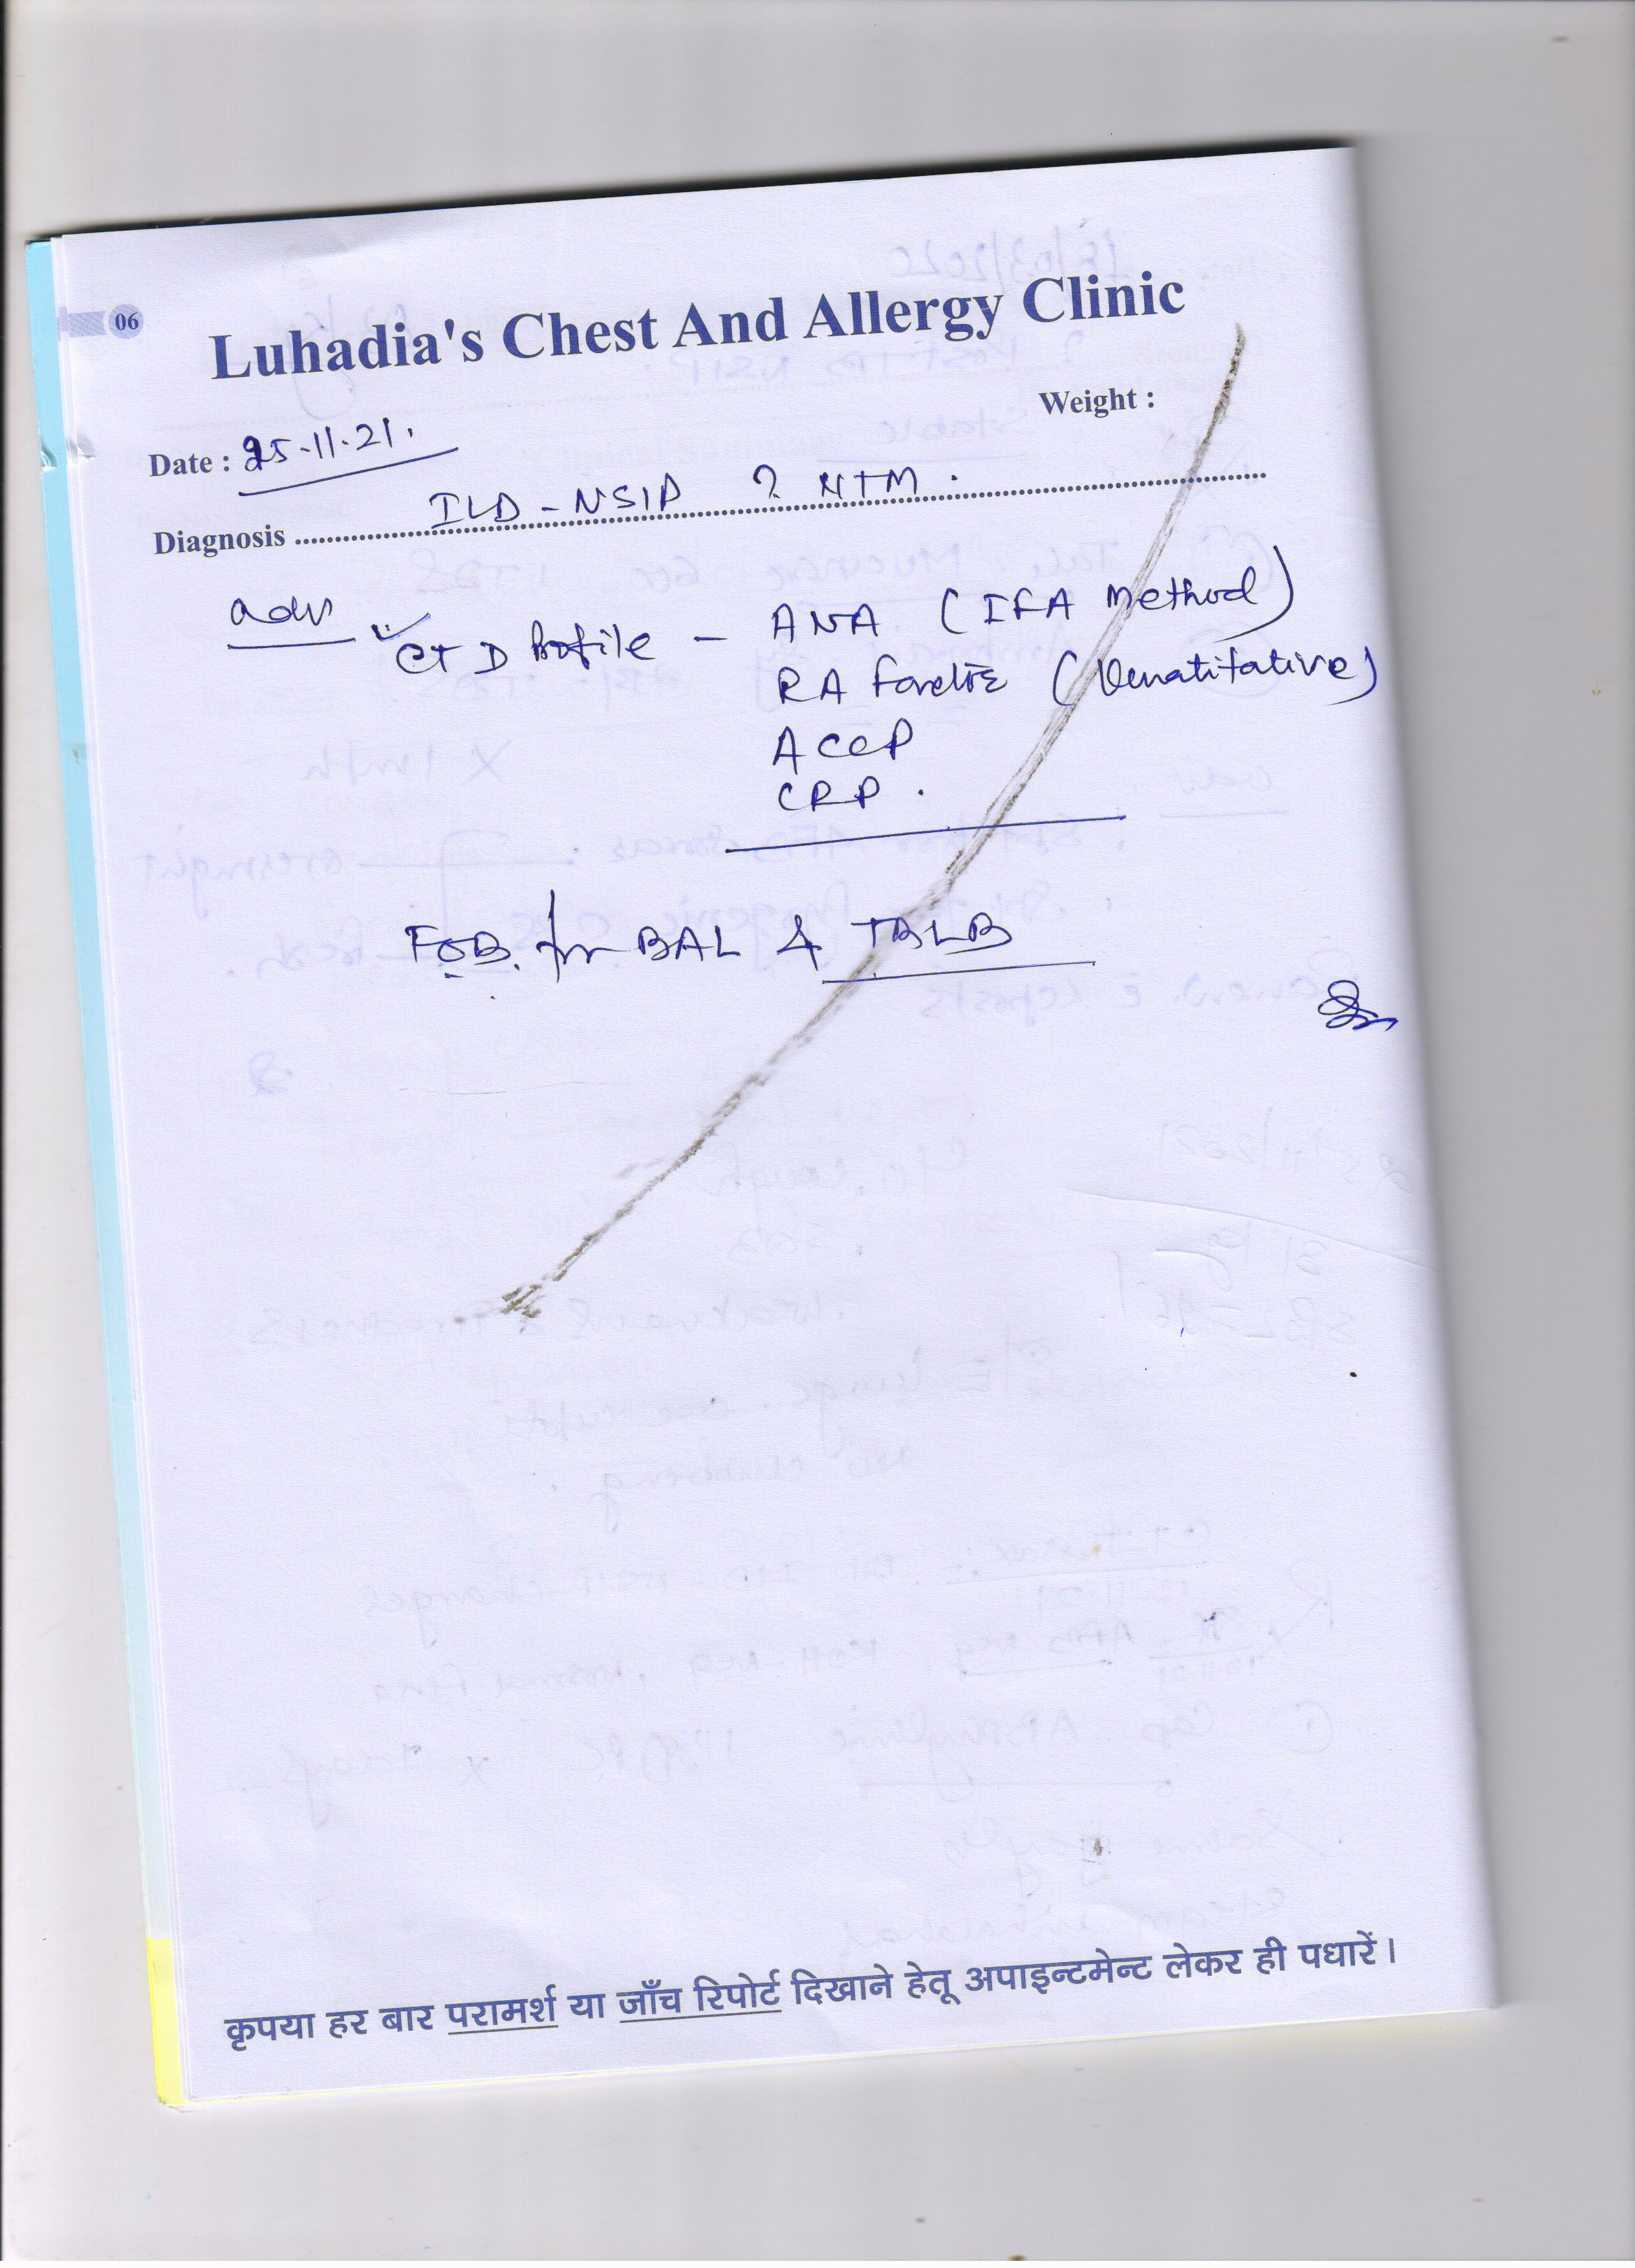 06
Luhadia's Chest And Allergy Clinic
Weight :
Date : 25.11.21.
Diagnosis ILD - NSIP ? NTM.
adv
CTD Profile - ANA (IFA Method)
RA Factor (Quantitative)
ACCP
CRP.
FOB. for BAL & TBLB
कृपया हर बार परामर्श या जाँच रिपोर्ट दिखाने हेतू अपाइन्टमेन्ट लेकर ही पधारें।